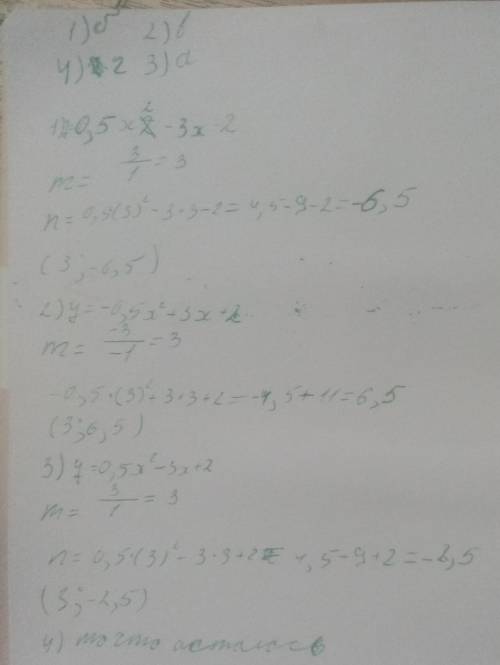 1) б 2) в
4) г 3) а
1) 0,5 x² - 3x - 2
m = 3/1 = 3
n = 0,5(3)² - 3·3 - 2 = 4,5 - 9 - 2 = -6,5
(3; -6,5)
2) y = -0,5x² + 3x + 2
m = -3/-1 = 3
-0,5·(3)² + 3·3 + 2 = -4,5 + 11 = 6,5
(3; 6,5)
3) y = 0,5x² - 3x + 2
m = 3/1 = 3
n = 0,5·(3)² - 3·3 + 2 = 4,5 - 9 + 2 = -2,5
(3; -2,5)
4) то что осталось